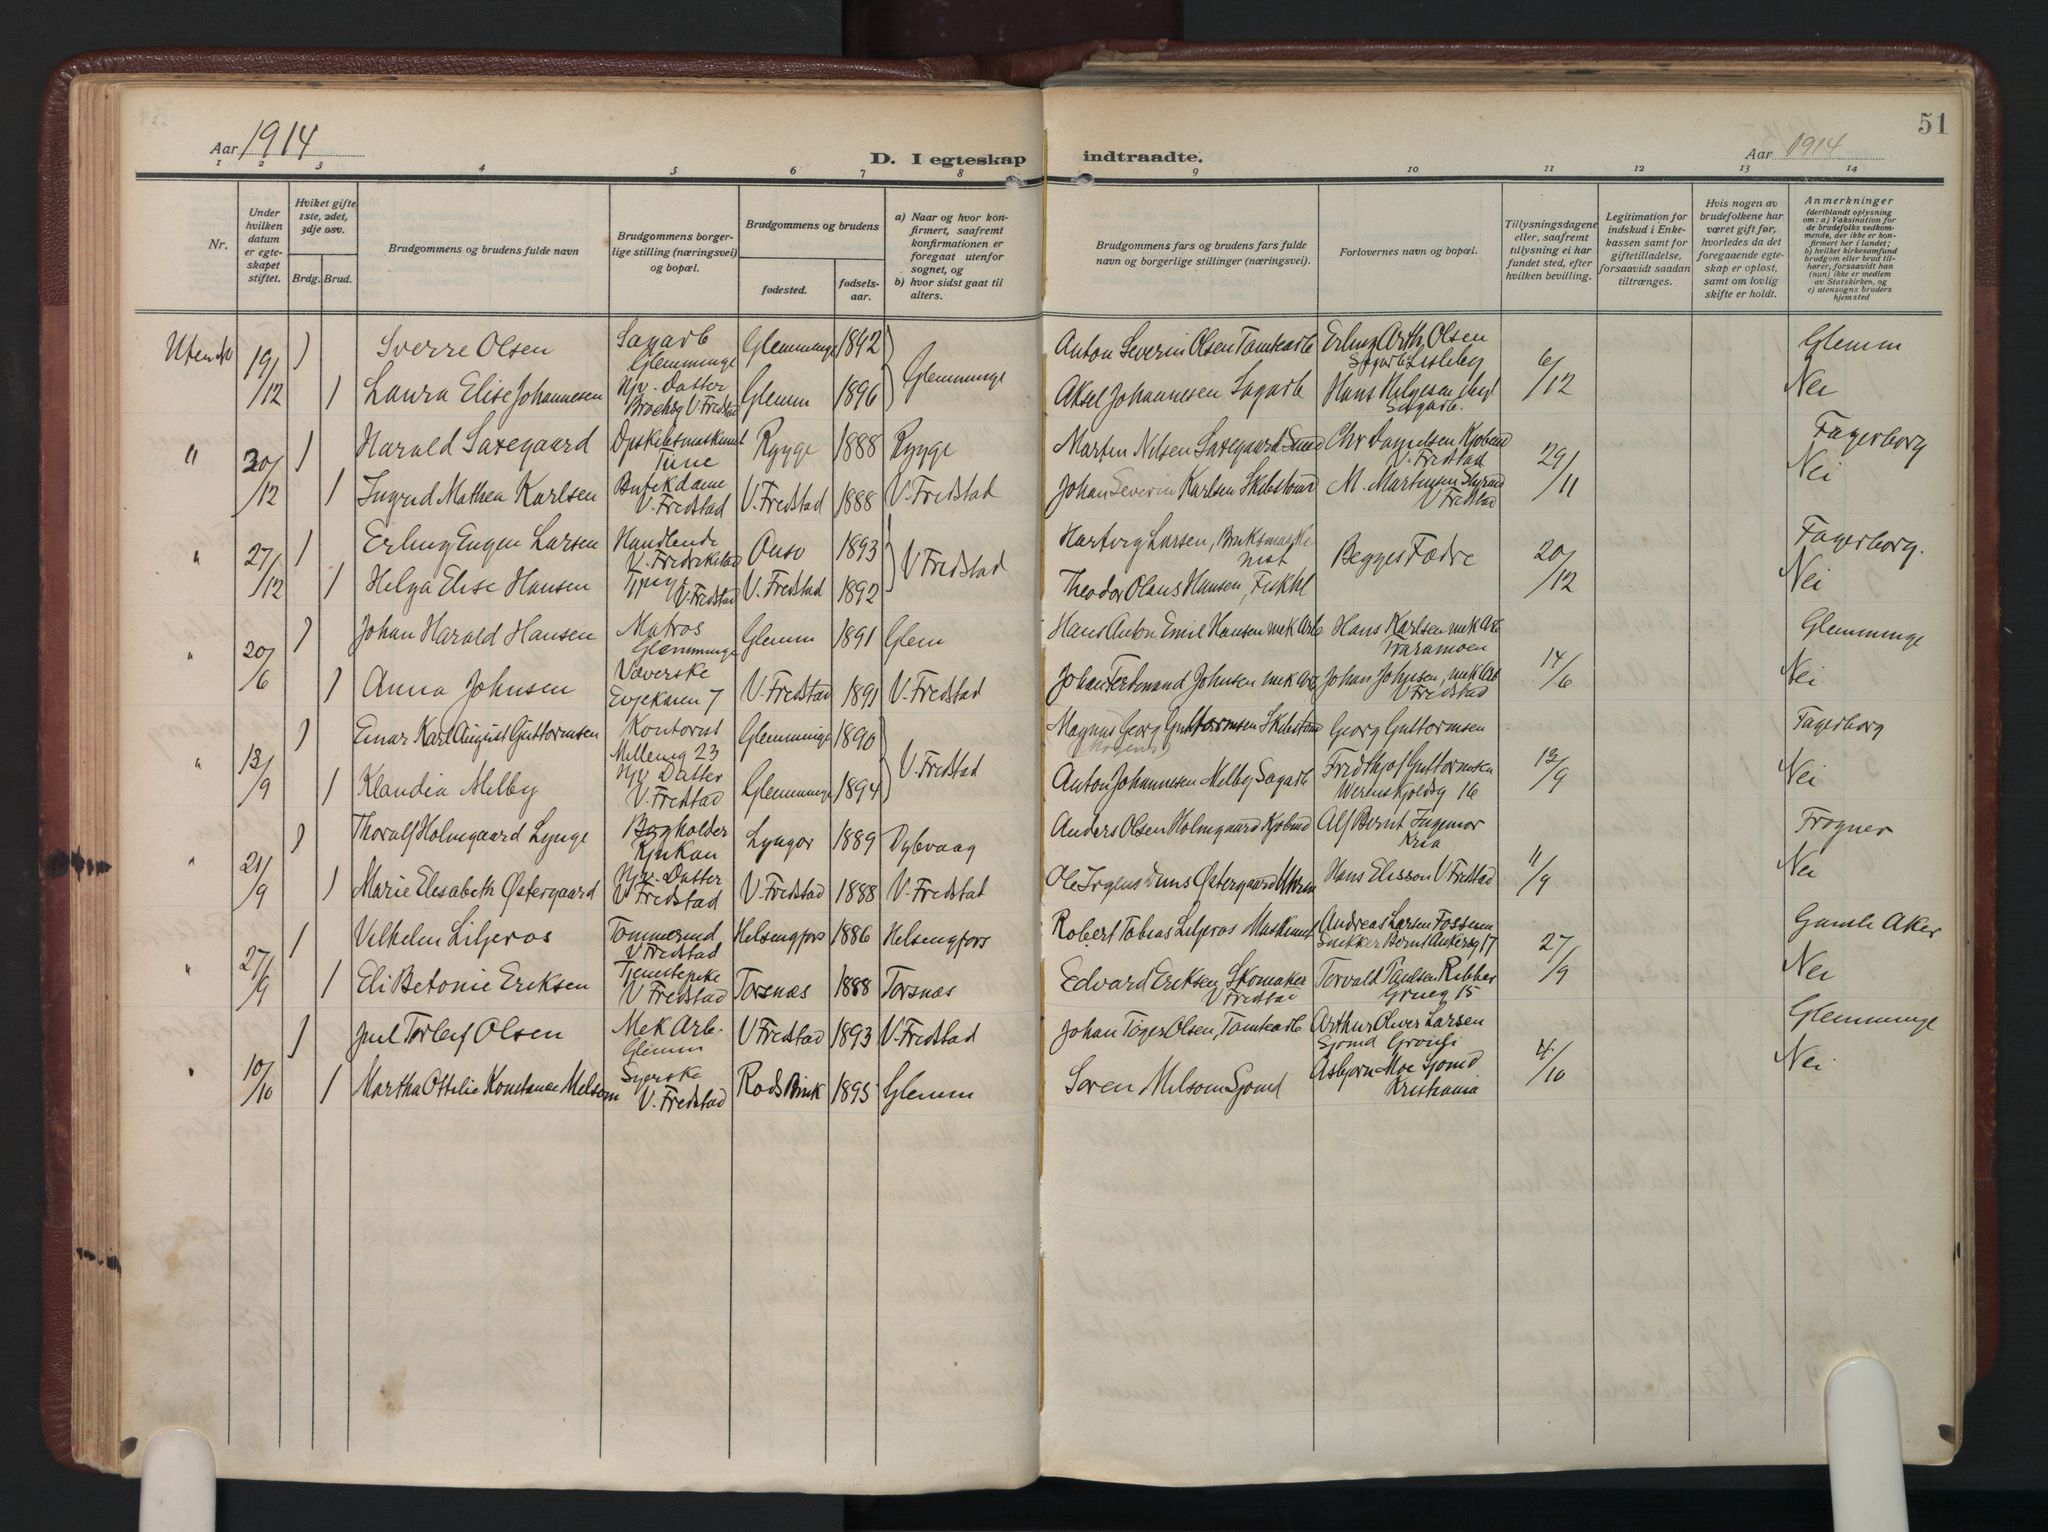 51
Aar 1914
D. I egteskap indtraadte.
Aar 1914
1 2 3 4 5 6 7 8 9 10 11 12 13 14
Nr.
Under hvilken datum er egteskapet stiftet.
Hviket gifte 1ste, 2det, 3dje osv.
Brdg. Brud.
Brudgommens og brudens fulde navn
Brudgommens borgerlige stilling (næringsvei) og bopæl.
Brudgommens og brudens
fødested.
fødselsaar.
a) Naar og hvor konfirmert, saafremt konfirmationen er foregaat utenfor sognet, og
b) hvor sidst gaat til alters.
Brudgommens fars og brudens fars fulde navn og borgerlige stillinger (næringsvei).
Forlovernes navn og bopæl.
Tillysningsdagene eller, saafremt tillysning ei har fundet sted, efter hvilken bevilling.
Legitimation for indskud i Enkekassen samt for giftetilladelse, forsaavidt saadan tiltrænges.
Hvis nogen av brudefolkene har været gift før, hvorledes da det foregaaende egteskap er opløst, samt om lovlig skifte er holdt.
Anmerkninger (deriblandt oplysning om: a) Vaksination for de brudefolks vedkommende, der ikke er konfirmert her i landet; b) hvilket kirkesamfund brudgom eller brud tilhører, forsaavidt han (hun) ikke er medlem av Statskirken, og c) utensogns bruders hjemsted
Utenb 19/12 1 Sverre Olsen Sagarb Glemminge Glemminge 1892 Glemminge Anton Severin Olsen Tomtearb Erling Arth. Olsen Sagarb Lisleby 6/12 Glemm
1 Laura Elise Johannesen Hjv. Datter V. Fredstad Glemm 1896 Aksel Johannesen Sagarb Hans Helgesen Sagarb. Nei
" 20/12 1 Harald Saxegaard Tune Rygge 1888 Rygge Marten Nilsen Saxegaard Smed Chr Danielsen Kjøbmd V. Fredstad 29/11 Fagerborg
1 Ingrid Mathea Karlsen Butikdame V. Fredstad V. Fredstad 1888 V. Fredstad Johan Severin Karlsen Skibstømr M. Martinsen Styrmd V Fredstad Nei
" 27/12 1 Erling Eugen Larsen Handlende V. Fredrikstad Onsø 1893 V Fredstad Hartvig Larsen, Bruksmaskinist Begges Fædre 20/12 Fagerborg.
1 Helga Elise Hansen V. Fredstad V. Fredstad 1892 Theodor Olaus Hansen, Fiskhl Nei
" 20/6 1 Johan Harald Hansen Matros Glemminge Glemm 1891 Glem Hans Anton Emil Hansen mek Arb Hans Karlsen mek Arb Traramoen 14/6 Glemminge
1 Anna Johnsen Væverske Evjekaien 7 V. Fredstad 1891 V. Fredstad Johan Ferdinand Johnsen mek Arb Johan Johnsen, mek Arb V Fredstad Nei
" 13/9 1 Einar Karl August Guttormsen Kontorist Millenig 23 Glemminge 1890 V. Fredstad Magnus Georg Guttormsen Skibstømr Georg Guttormsen 13/9 Fagerborg
1 Klaudia Melby Hjv Datter V. Fredstad Glemminge 1894 Anton Johannesen Melby Sagarb Fridthjof Guttormsen Werenskjoldsg 16 Nei
" 21/9 1 Thoralf Holmgaard Lynge Bogholder Rjukan Lyngør 1889 Dybvaag Anders Olsen Holmgaard Kjøbmd Alf Bernt Ingeniør Kria 11/9 Frogner
1 Marie Elisabeth Østergaard Hjv. Datter V Fredstad V. Fredstad 1888 V. Fredstad Ole Jrgens Dines Østergaard Hans Elisson V Fredstad Nei
" 27/9 1 Vilhelm Liljeros Tømmermd V Fredstad Helsengfors 1886 Helsengfors Robert Tobias Liljeros Maskinist Andreas Larsen Fossum Snekker Bernt Ankersg 17 27/9 Gamle Aker
1 Eli Betonie Eriksen Tjenestepike V Fredstad Torsnæs 1888 Torsnæs Edvard Eriksen, Skomaker V Fredstad Torvald Paulsen Ribber Grueg 15 Nei
" 10/10 1 Juel Torleif Olsen Mek Arb. Glemm V Fredstad 1893 V. Fredstad Johan Tøger Olsen, Tomtearb Arthur Oliver Larsen Sjømd 4/10 Glemminge
1 Martha Ottilie Konstanse Melsom Syerske V. Fredstad Røds Bruk 1895 Glemm Søren Milsom Sjømd Asbjørn Moe Sjømd Kristiania Nei